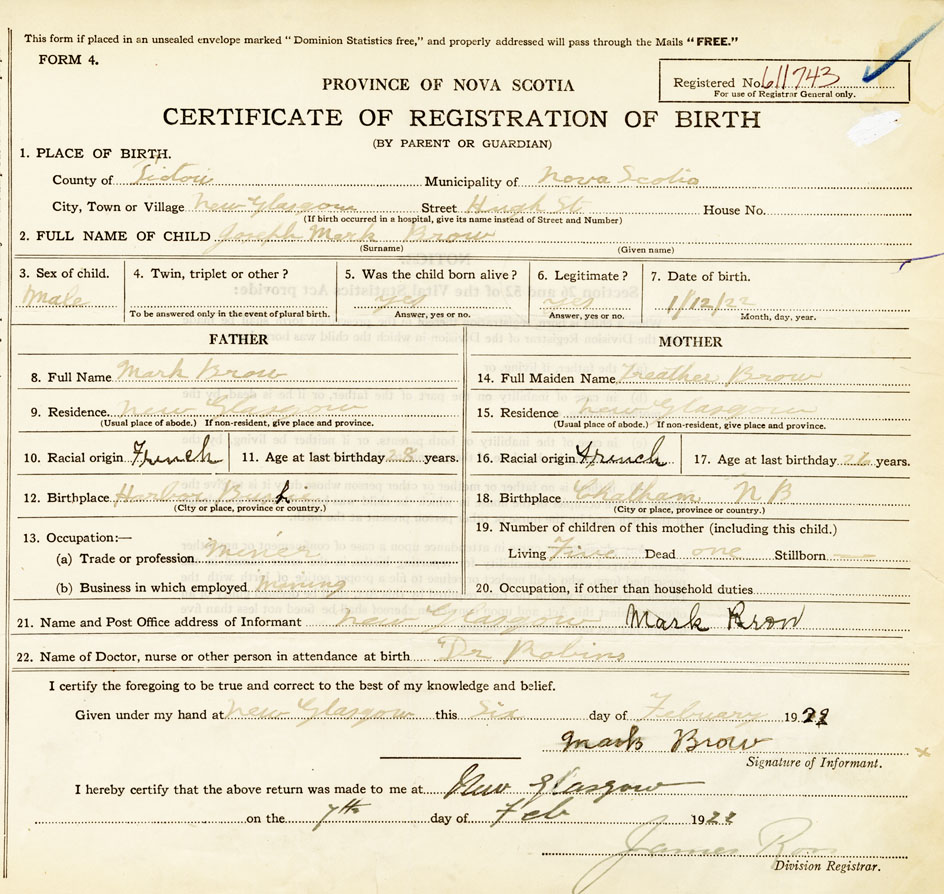 This form if placed in an unsealed envelope marked "Dominion Statistics free," and properly addressed will pass through the Mails "FREE."
FORM 4.
Registered No. 611743
For use of Registrar General only.
PROVINCE OF NOVA SCOTIA
CERTIFICATE OF REGISTRATION OF BIRTH
(BY PARENT OR GUARDIAN)
1. PLACE OF BIRTH.
County of Municipality of Nova Scotia
City, Town or Village New Glasgow Street St. House No.
(If birth occurred in a hospital, give its name instead of Street and Number)
2. FULL NAME OF CHILD Joseph Mark Brow
(Surname) (Given name)
3. Sex of child. 4. Twin, triplet or other? 5. Was the child born alive? 6. Legitimate? 7. Date of birth.
Male yes yes 1/12/22
To be answered only in the event of plural birth. Answer, yes or no. Answer, yes or no. Month, day, year.
FATHER MOTHER
8. Full Name Mark Brow 14. Full Maiden Name Brow
9. Residence. New Glasgow 15. Residence New Glasgow
(Usual place of abode.) If non-resident, give place and province. (Usual place of abode.) If non-resident, give place and province.
10. Racial origin French 11. Age at last birthday 28 years. 16. Racial origin French 17. Age at last birthday 26 years.
12. Birthplace Harbor 18. Birthplace Chatham N B
(City or place, province or country.) (City or place, province or country.)
13. Occupation:— 19. Number of children of this mother (including this child.)
(a) Trade or profession Miner Living Five Dead one Stillborn —
(b) Business in which employed Mining 20. Occupation, if other than household duties
21. Name and Post Office address of Informant New Glasgow Mark Brow
22. Name of Doctor, nurse or other person in attendance at birth Dr Robins
I certify the foregoing to be true and correct to the best of my knowledge and belief.
Given under my hand at New Glasgow this Six day of February 1922
Mark Brow
Signature of Informant.
I hereby certify that the above return was made to me at New Glasgow
on the 7th day of Feb 1922
James
Division Registrar.